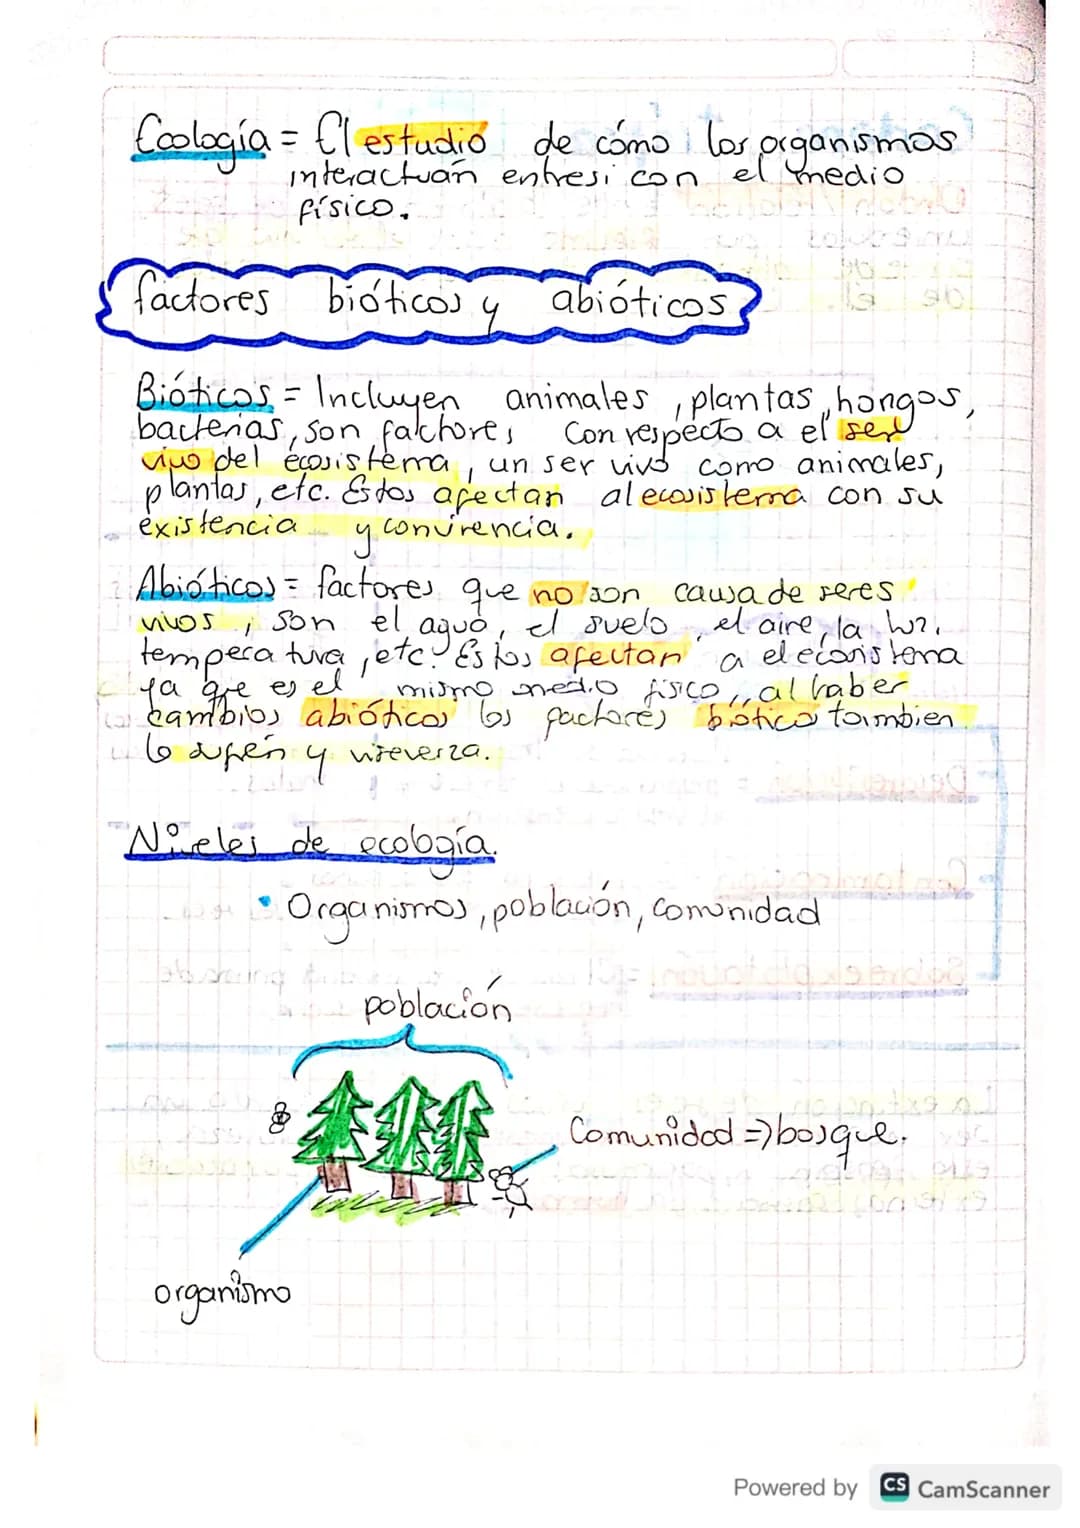 Ecología = El estudio de cómo los organismos
interactuán entresi con el medio
físico.
factores bióticos y abióticos
Bióticos = Incluyen animales, plantas, hongos,
bacterias, son factores con respecto a el ser
vivo del écosistema, un ser vivo como animales,
plantas, etc. Estos afectan al ecosistema con su
existencia y convivencia.
Abióticos = factores que no son causa de seres
vivos, son el agua, el suelo, el aire, la luz,
temperatura, etc. Estos afectan a el ecosistema
ya que es el mismo medio físico, al haber
cambios abióticos los factores biótico tambien
lo sufren y viseverza.
Niveles de ecología.
• Organismos, población, comunidad
población
Comunidad => bosque.
organismo
Powered by CS CamScanner